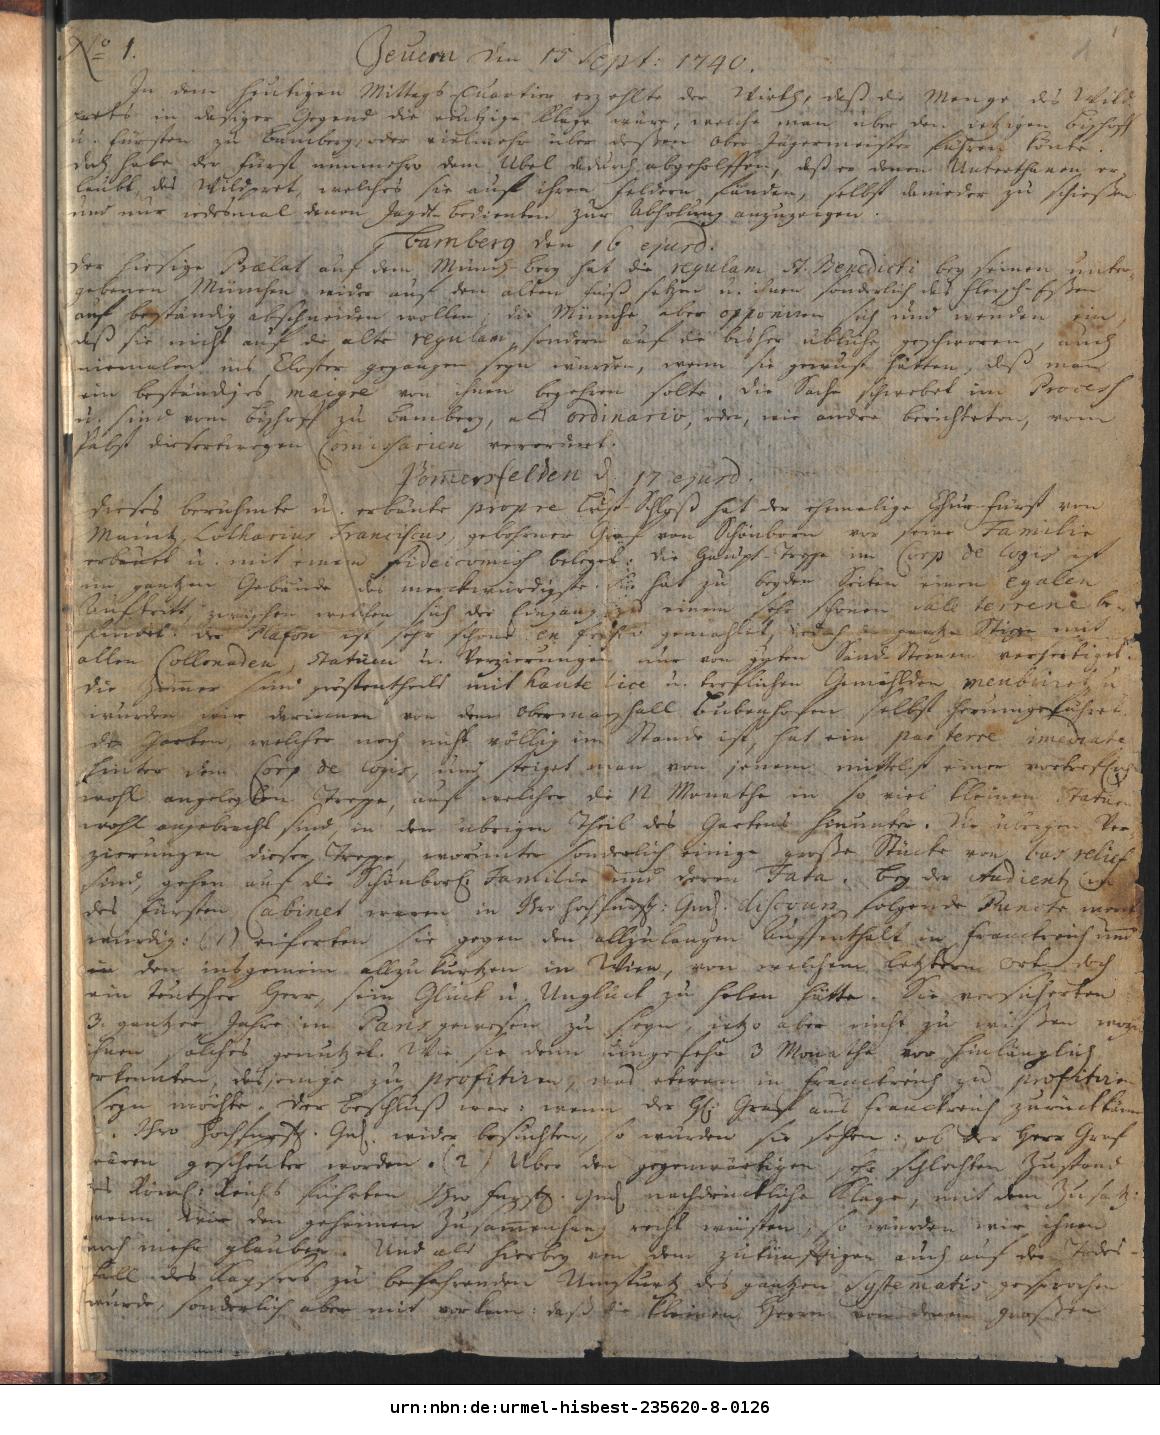 No 1.
Zeuern den 15 Sept: 1740.
In dem heutigen Mittags-Quartier erzehlte der Wirth, daß die Menge des Wild-
prets in dasiger Gegend die eintzige Klage wäre, welche man über den ietzigen Byschoff
u. Fürsten zu Bamberg, oder vielmehr über deßen Ober Jägermeister führen könte.
Doch habe der Fürst nunmehro dem Übel dadurch abgeholffen, daß er denen Unterthanen er-
laubt, das Wildpret, welches sie auf ihren Feldern fänden, selbst darnieder zu schießen
und nur iedesmal denen Jagd-Bedienten zur Abholung anzuzeigen.
Bamberg den 16 ejusd.
Der hiesige Prælat auf dem Münch-Berg hat die regulam St. Benedicti bey seinen unter-
gebenen München wider auf den alten Fuß setzen u. ihnen sonderlich das Fleisch-Eßen
auf beständig abschneiden wollen; die Münche aber opponiren sich und wenden ein,
daß sie nicht auf die alte regulam, sondern auf die bisher übliche geschworen, auch
niemalen ins Closter gegangen seyn würden, wenn sie gewust hätten, daß man
ein beständiges maigre von ihnen begehren solte. Die Sache schwebet im Process
u. sind vom Byschoff zu Bamberg, als ordinario, oder, wie andre berichteten, vom
Pabst dieserwegen Comissarien verordnet.
Pomersfelden d. 17 ejusd.
Dieses berühmte u. erbaute propre Lust-Schloß hat der ehemalige Chur-Fürst von
Mäintz, Lotharius Franciscus, gebohrner Graf von Schönborn vor seine Familie
erbauet u. mit einem fideicomiss beleget. Die Haupt-Treppe im Corp de Logis ist
im gantzen Gebäude das merckwürdigste. Sie hat zu beyden Seiten einen egalen
Aufftritt, zwischen welchen sich der Eingang zu einem sehr schönen Sale terrene be-
findet. der Plafon ist sehr schön en fresco gemahlet, und die gantze Stiege mit
allen Collonaden, Statuen u. Verzierungen nur von guten Sand-Steinen verfertiget.
Die Zimmer sind gröstentheils mit haute lice u. trefflichen Gemählden meubliret, u.
wurden wir darinnen von dem Obermarschall Bubenhofen selbst herumgeführet.
Der Garten, welcher noch nicht völlig im Stande ist, hat ein parterre imediate
hinter dem Corp de Logis, und steiget man von jenem mittelst einer vortrefflich
wohl angelegten Treppe, auf welcher die 12 Monathe in so viel kleinen Statuen
wohl angebracht sind, in den übrigen Theil des Gartens hinunter. Die übrigen Ver-
zierungen dieser Treppe, worunter sonderlich einige große Stücke von bas relief
sind, gehen auf die Schönbornl. Familie und deren Fata. Bey der Audientz in
des Fürsten Cabinet waren in Ihro Hochfürstl: Gnd: discours folgende Puncte merck-
würdig: (1) eiferten sie gegen den allzulangen Auffenthalt in Franckreich und
in den insgemein allzukurtzen in Wien, von welchem letztern Orte doch
ein teutscher Herr, sein Glück u. Unglück zu holen hätte. Sie versicherten
3. gantzer Jahre in Paris gewesen zu seyn, ietzo aber nicht zu wißen worzu
ihnen solches genutzet. Wie sie denn ungefehr 3 Monathe vor hinlänglich
erkennten, dasjenige zu profitiren, was etwan in Franckreich zu profitiren
seyn möchte. Der Beschluß war: wenn der H. Graf aus Franckreich zurückkäme
u. Ihro Hochfürstl. Gnd. wider besuchten, so würden sie sehen: ob der Herr Graf
wären gescheuter worden. (2) Über den gegenwärtigen sehr schlechten Zustand
des Römi: Reichs führten Ihro fürstl. Gnd nachdrückliche Klage, mit dem Zusatz:
wenn wir den geheimen Zusammenhang recht wüsten, so würden wir ihnen
noch mehr glauben. Und als hierbey von dem zukünfftigen auch auf den Todes-
fall des Kaysers zu befahrenden Umsturtz des gantzen Systematis gesprochen
wurde, sonderlich aber mit vorkam: daß die kleinen Herren von denen großen
urn:nbn:de:urmel-hisbest-235620-8-0126